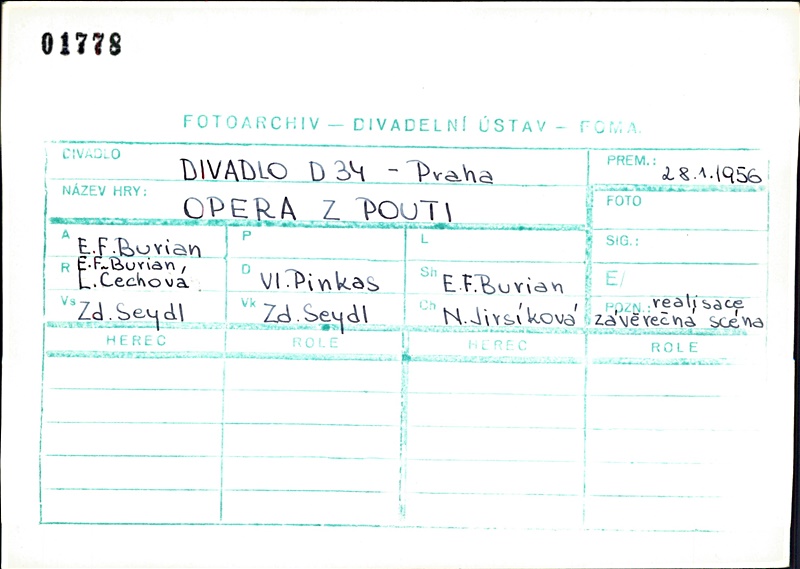 01778
FOTOARCHIV — DIVADELNÍ ÚSTAV — FOMA
DIVADLO DIVADLO D 34 - Praha
PREM.: 28.1.1956
NÁZEV HRY: OPERA Z POUTI
FOTO
A E.F.Burian
P
L
SIG.:
R E.F.Burian,
L.Čechová
D Vl.Pinkas
Sh E.F.Burian
E/
Vs Zd.Seydl
Vk Zd.Seydl
Ch N.Jirsíková
POZN.: realisace
závěrečná scéna
HEREC ROLE HEREC ROLE